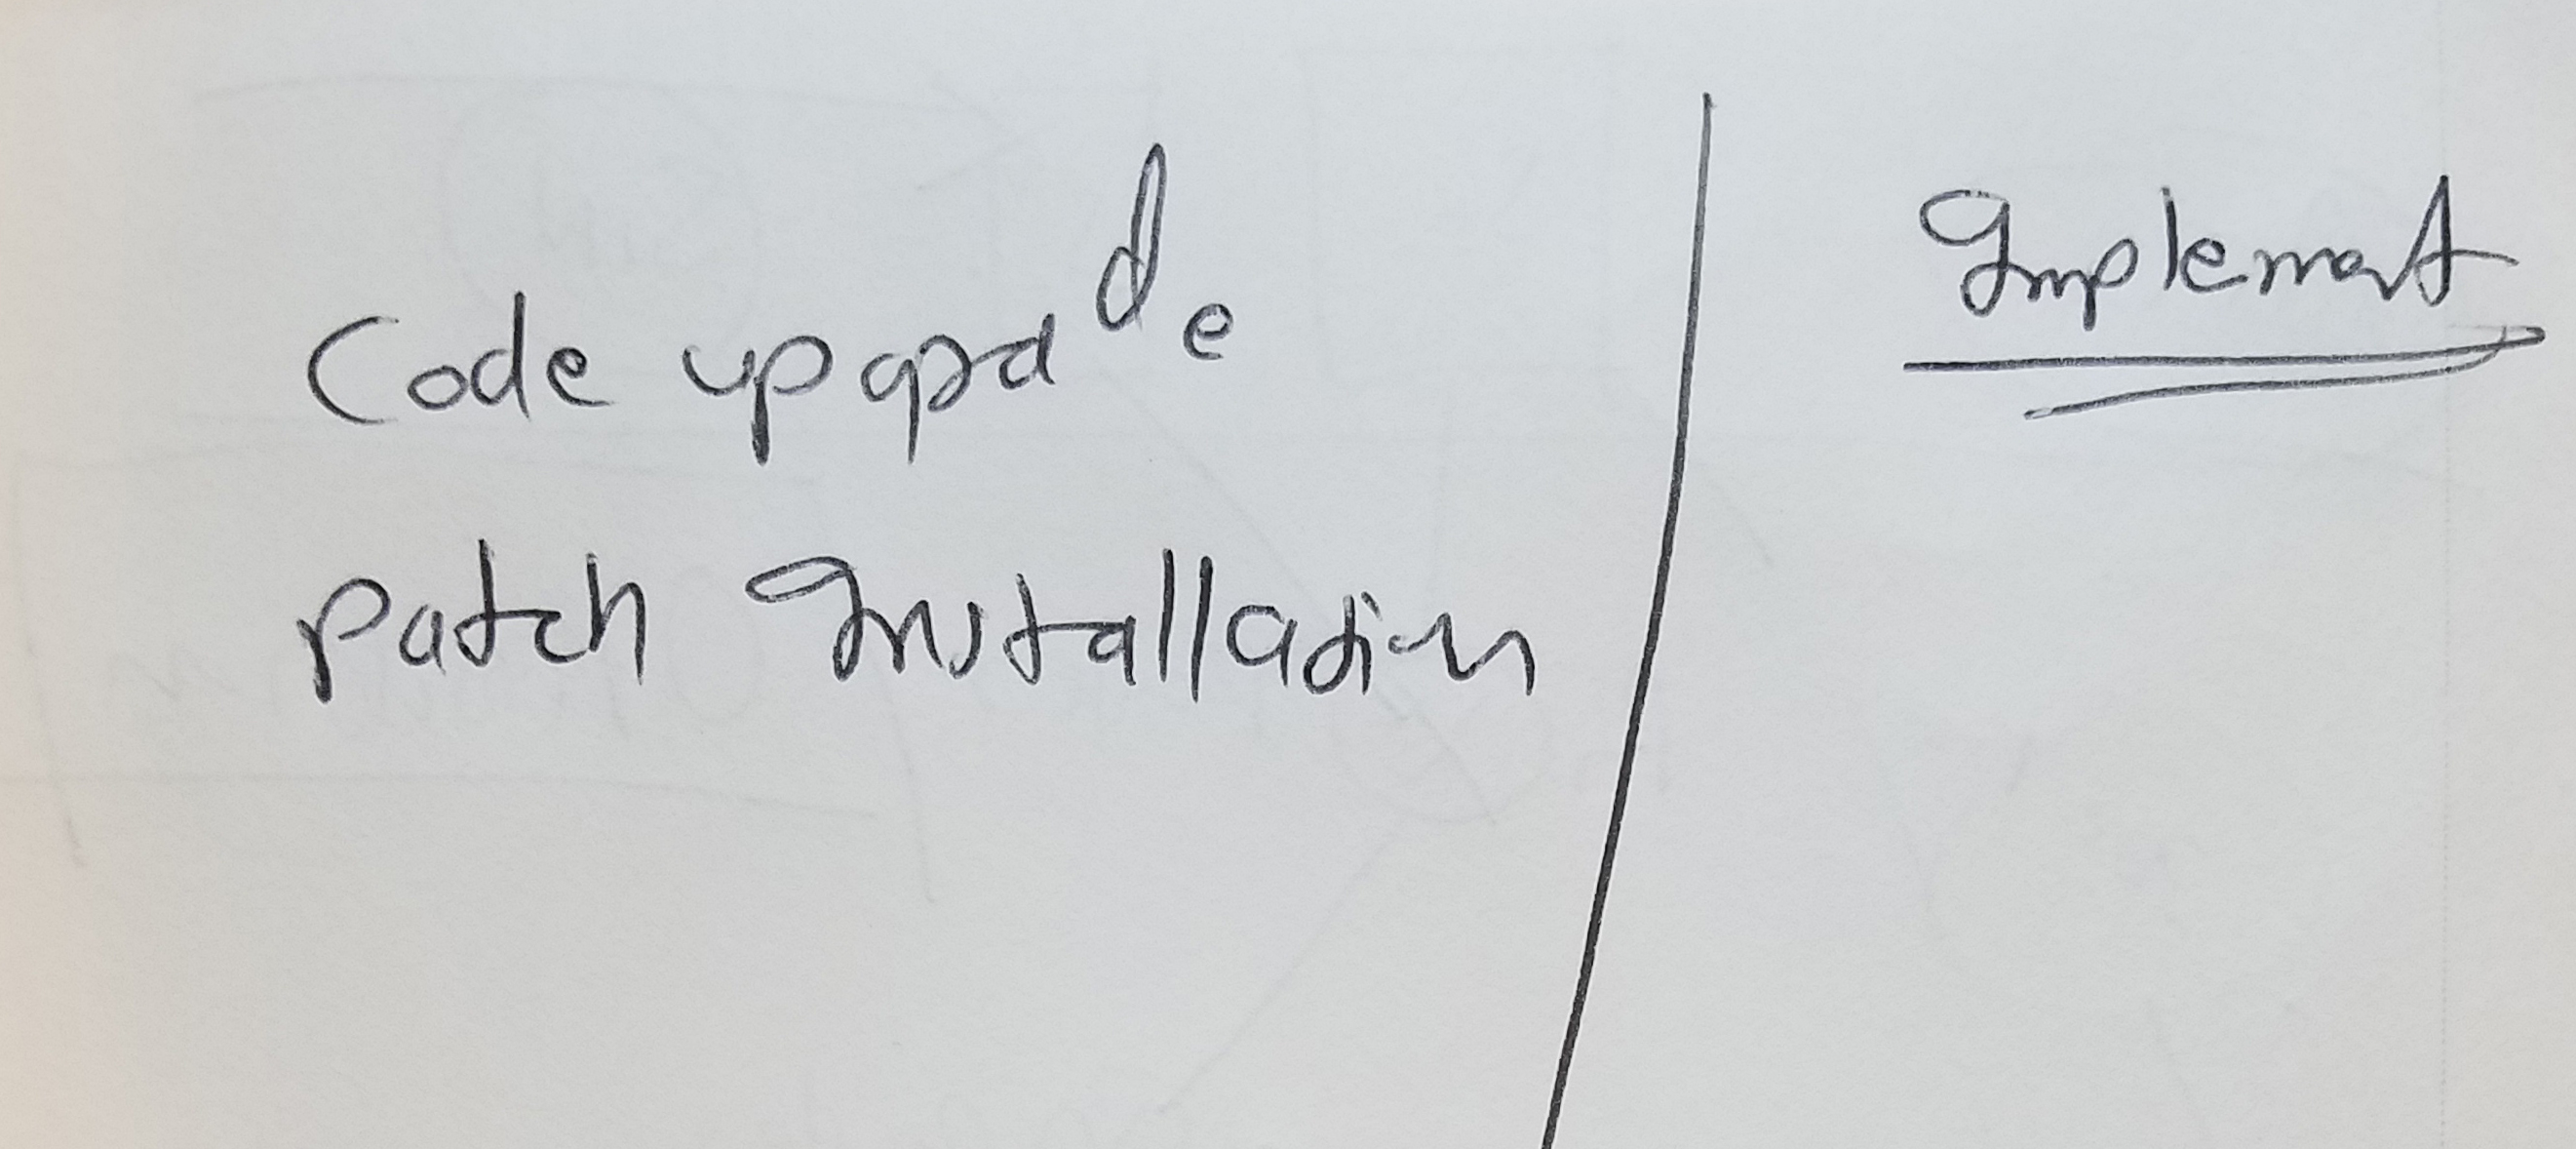 Code upgrade
Patch Installation
Implement